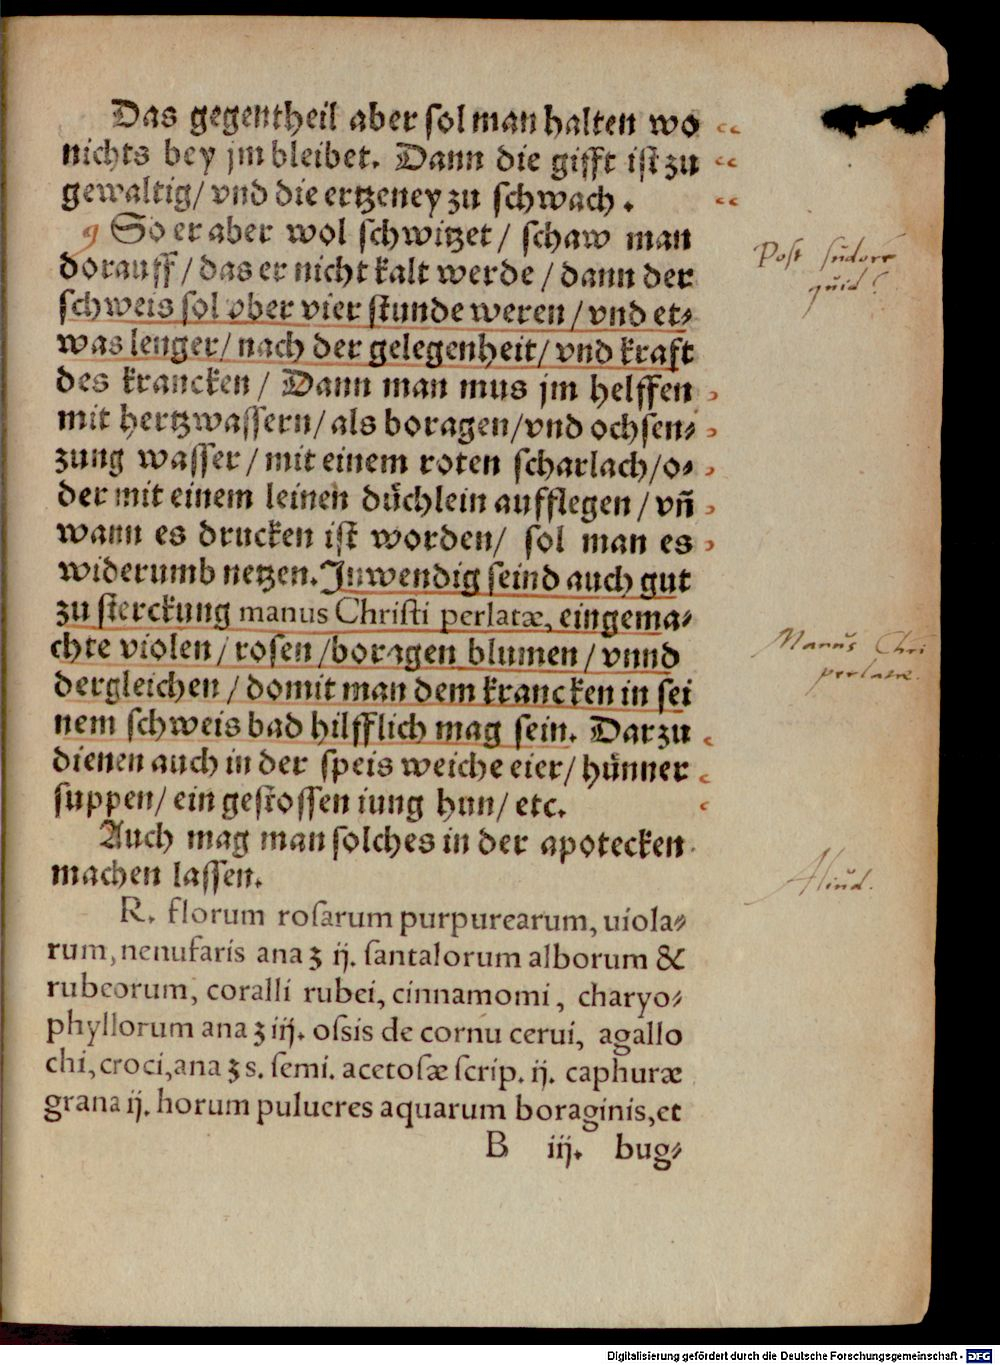 Das gegentheil aber sol man halten wo
nichts bey jm bleibet. Dann die gifft ist zu
gewaltig/ vnd die ertzeney zu schwach.
So er aber wol schwitzet/ schaw man
dorauff/ das er nicht kalt werde/ dann der
schweis sol vber vier stunde weren/ vnd et⸗
was lenger/ nach der gelegenheit/ vnd kraft
des krancken/ Dann man mus jm helffen
mit hertzwassern/ als boragen/ vnd ochsen⸗
zung wasser/ mit einem roten scharlach/ o⸗
der mit einem leinen düchlein aufflegen/ vñ
wann es drucken ist worden/ sol man es
widerumb netzen. Inwendig seind auch gut
zu sterckung manus Christi perlatæ, eingema⸗
chte violen/ rosen/ boragen blumen/ vnnd
dergleichen/ domit man dem krancken in sei
nem schweis bad hilfflich mag sein. Darzu
dienen auch in der speis weiche eier/ hünner
suppen/ ein gestossen iung hun/ etc.
Auch mag man solches in der apotecken
machen lassen.
R. florum rosarum purpurearum, uiola⸗
rum, nenufaris ana ʒ ij. santalorum alborum &
rubeorum, coralli rubei, cinnamomi, charyo⸗
phyllorum ana ʒ iij. ossis de cornu cerui, agallo
chi, croci, ana ʒ s. semi. acetosæ scrip. ij. caphuræ
grana ij. horum pulueres aquarum boraginis, et
B iij. bug⸗
Post sudorē
quid?
Manus Chri
perlatæ.
Aliud.
Digitalisierung gefördert durch die Deutsche Forschungsgemeinschaft - DFG